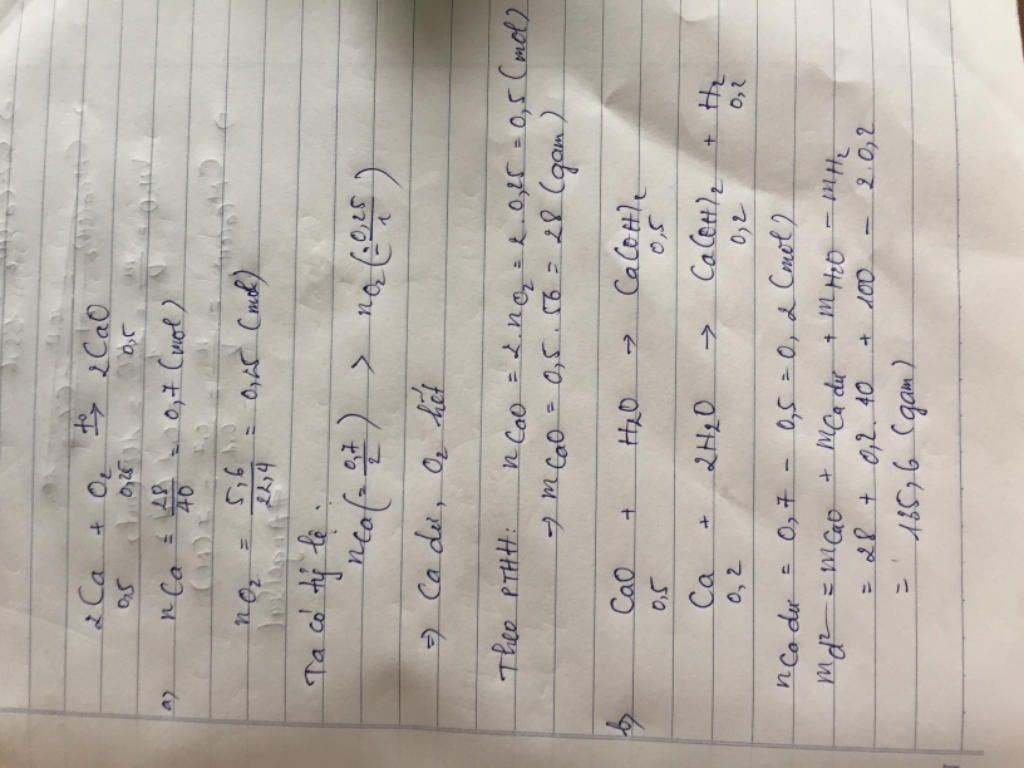 2Ca + O₂ →(t°) 2CaO
0,5 0,25 0,5
a, nCa = 28/40 = 0,7 (mol)
nO₂ = 5,6/22,4 = 0,25 (mol)
Ta có tỷ lệ :
nCa (= 0,7/2) > nO₂ (= 0,25/1)
⇒ Ca dư, O₂ hết
Theo PTHH: nCaO = 2.nO₂ = 2.0,25 = 0,5 (mol)
⇒ mCaO = 0,5.56 = 28 (gam)
b, CaO + H₂O → Ca(OH)₂
0,5 0,5
Ca + 2H₂O → Ca(OH)₂ + H₂
0,2 0,2 0,2
nCa dư = 0,7 - 0,5 = 0,2 (mol)
md² = mCaO + mCa dư + mH₂O - mH₂
= 28 + 0,2.40 + 100 - 2.0,2
= 135,6 (gam)